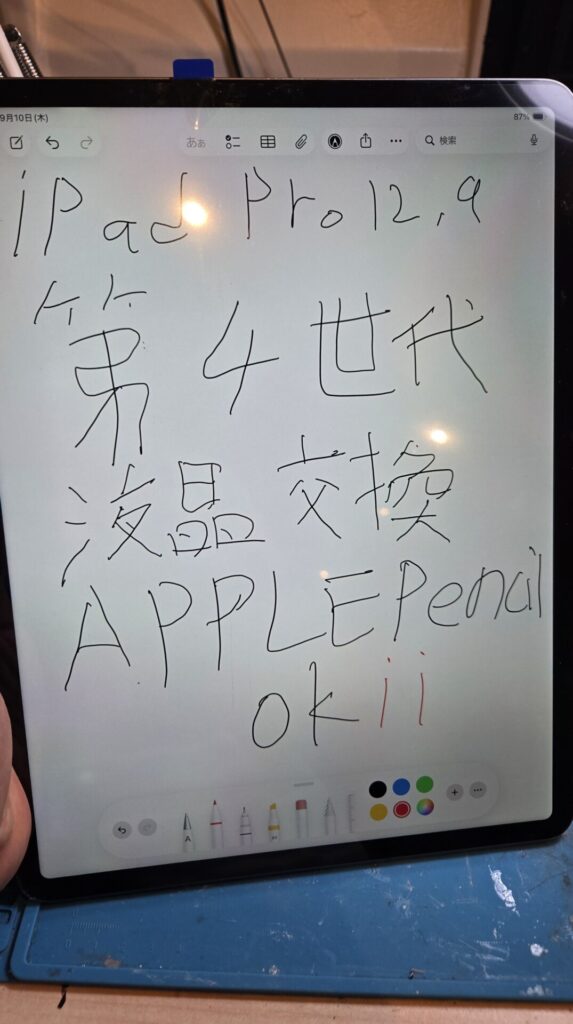 9月10日(木)
87%
あぁ
検索
iPad Pro 12.9
第4世代
液晶交換
APPLE Pencil
ok!!